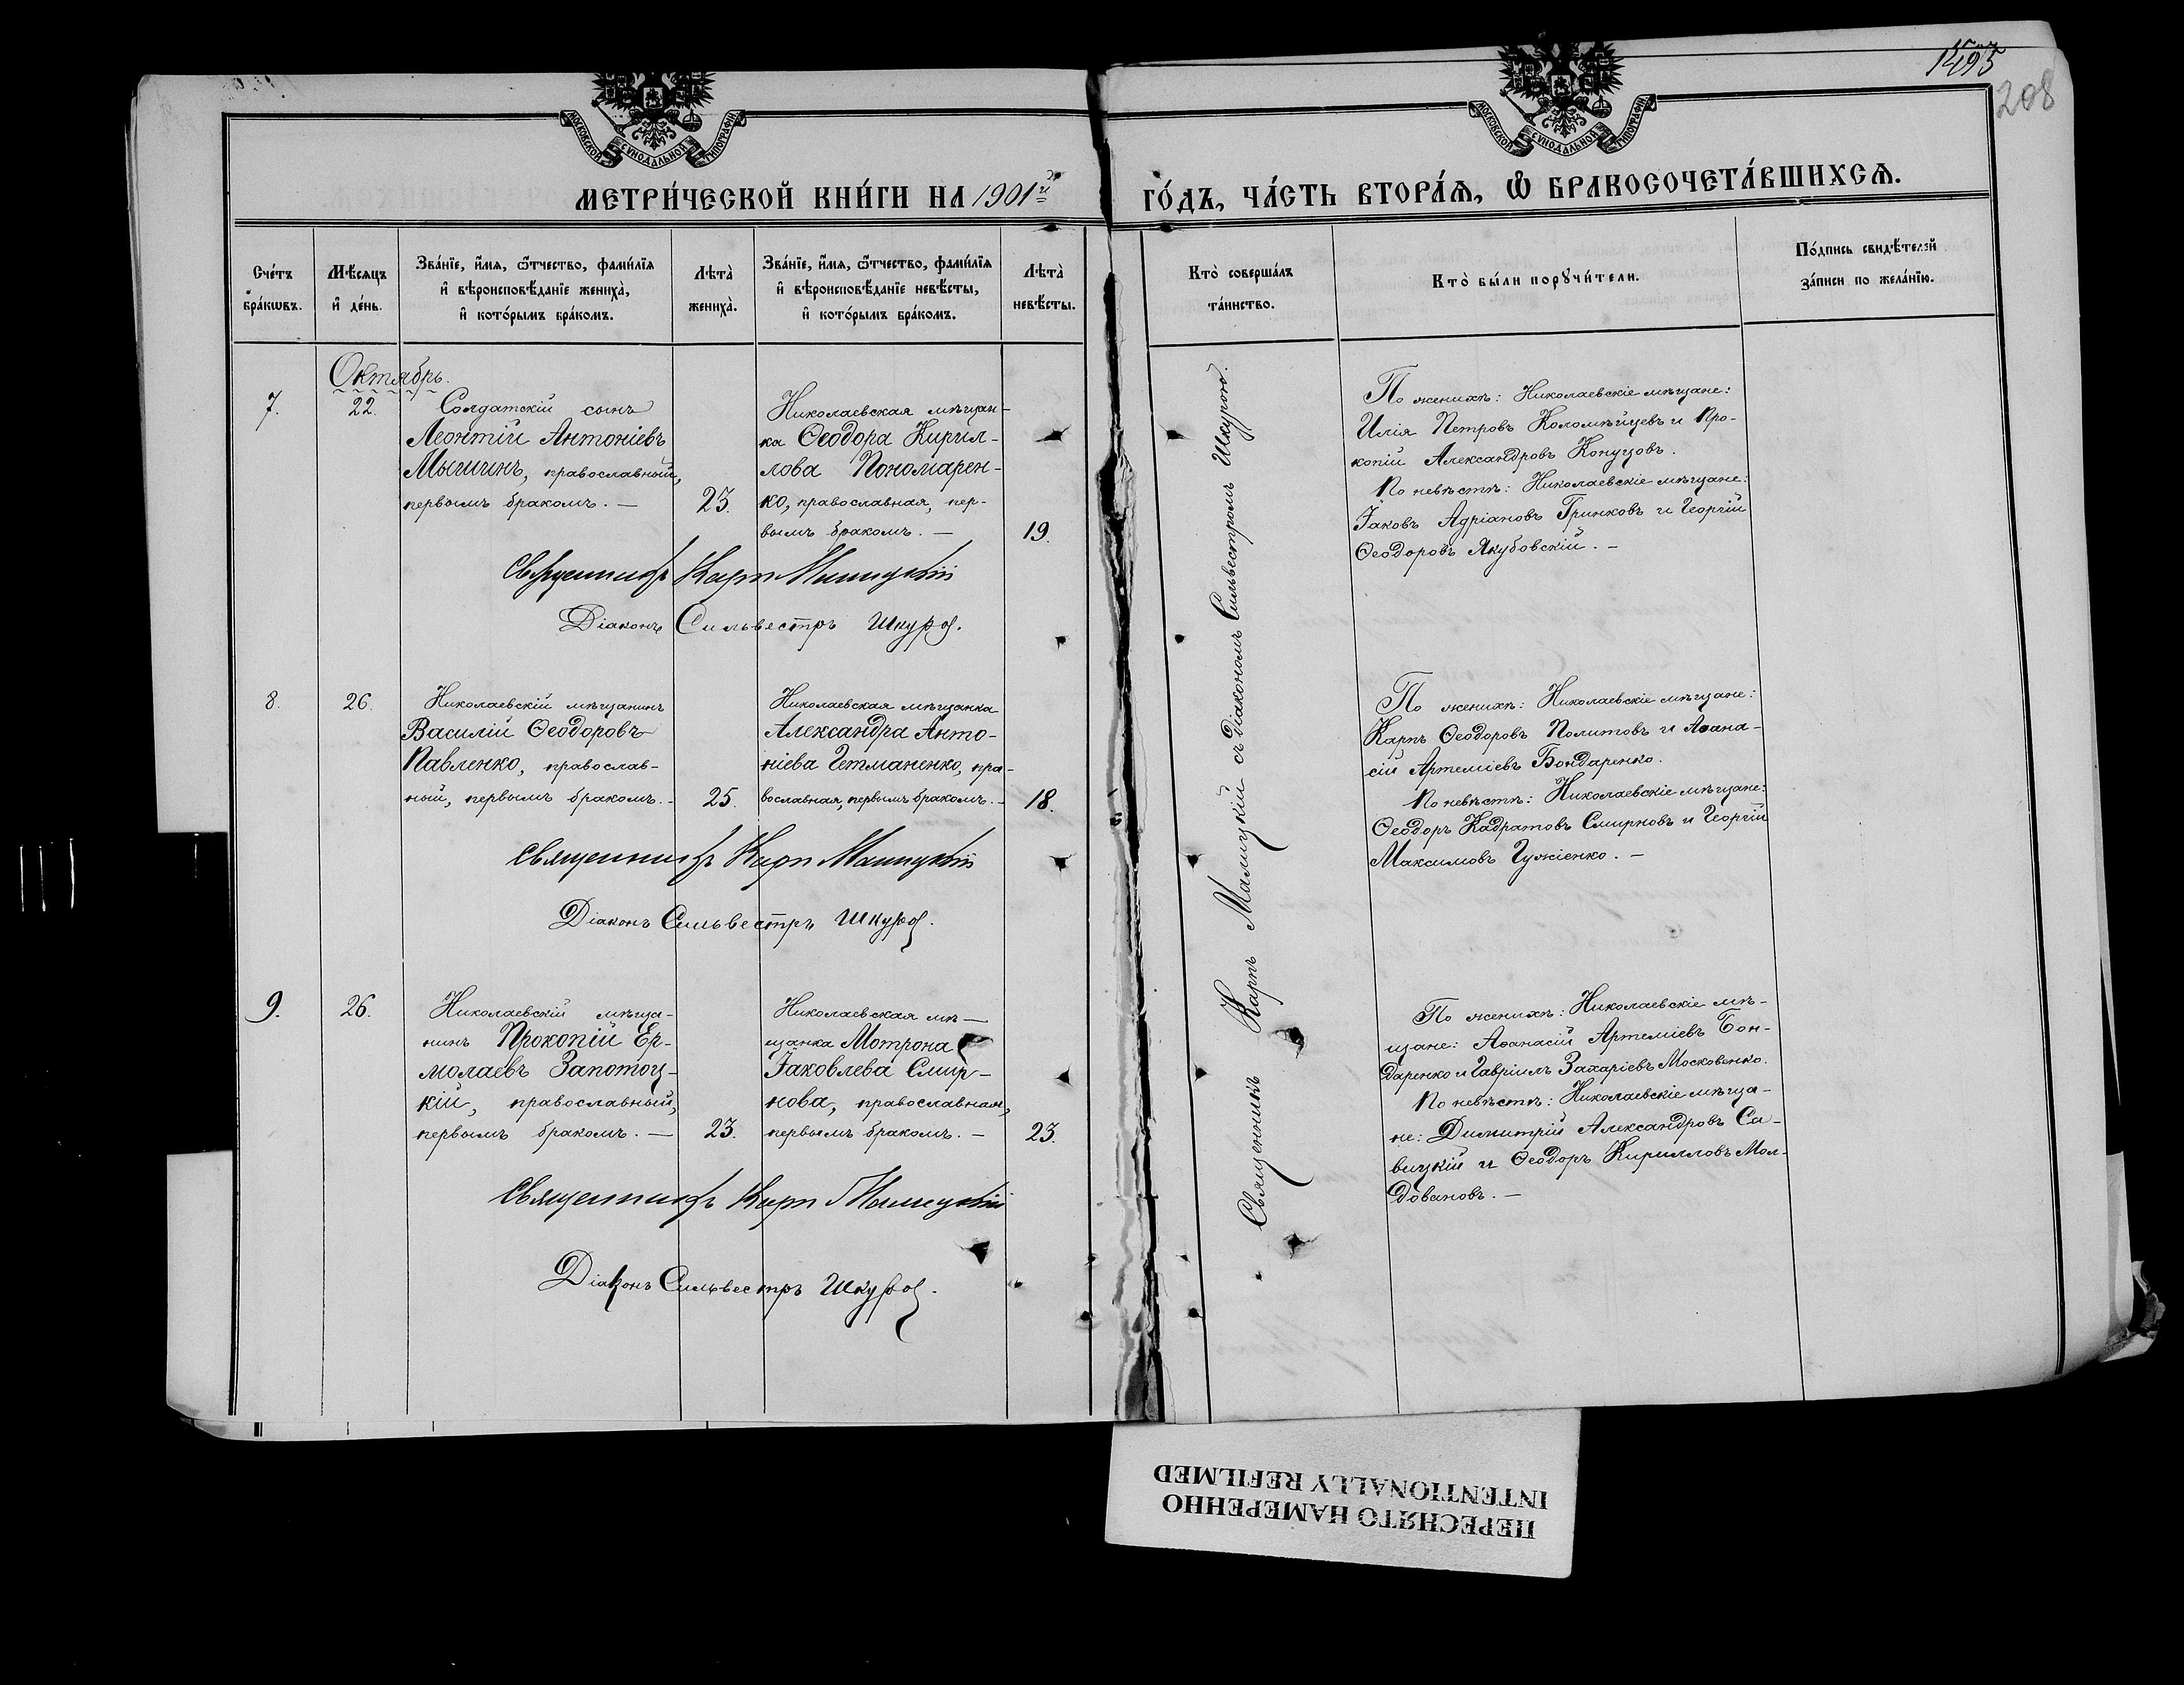 1495
208
МОСКОВСКОЙ СУНОДАЛЬНОЙ ТИПОГРАФІИ
МОСКОВСКОЙ СУНОДАЛЬНОЙ ТИПОГРАФІИ
МЕТРИ́ЧЕСКОЙ КНИ́ГИ НА 1901й
ГО́ДЪ, ЧА́СТЬ ВТОРА́Я, Ѽ БРАКОСОЧЕТА́ВШИХСЯ.
Сче́тъ
бра́кѡвъ.
Мѣ́сяцъ
и҆ де́нь.
Зва́нїе, и҆́мя, ѻ҆́тчество, фами́лїя
и҆ вѣроисповѣ́данїе жениха̀,
и҆ кото́рымъ бра́комъ.
Лѣта̀
жениха̀.
Зва́нїе, и҆́мя, ѻ҆́тчество, фами́лїя
и҆ вѣроисповѣ́данїе невѣ́сты,
и҆ кото́рымъ бра́комъ.
Лѣта̀
невѣ́сты.
Кто̀ соверша́лъ
та́инство.
Кто̀ бы́ли порꙋчи́тели.
По́дпись свидѣ́телей
за́писи по жела́нїю.
Октябрь.
7.
22.
Солдатскій сынъ
Леонтій Антоніевъ
Мышинъ, православный,
первымъ бракомъ. —
23.
Николаевская мѣщан-
ка Ѳеодора Кирил-
лова Пономарен-
ко, православная, пер-
вымъ бракомъ. —
19.
Священникъ Карпъ Малицкій съ діакономъ Сильвестромъ Шкурою.
По женихѣ: Николаевскіе мѣщане:
Илія Петровъ Коломѣйцевъ и Про-
копій Александровъ Конуцовъ.
По невѣстѣ: Николаевскіе мѣщане:
Іаковъ Адріановъ Гринковъ и Георгій
Ѳеодоровъ Якубовскій. —
Священникъ Карп Малицкій
Діаконъ Сильвестръ Шкура.
8.
26.
Николаевскій мѣщанинъ
Василій Ѳеодоровъ
Павленко, православ-
ный, первымъ бракомъ. -
25.
Николаевская мѣщанка
Александра Анто-
ніева Гетманенко, пра-
вославная, первымъ бракомъ. -
18.
По женихѣ: Николаевскіе мѣщане:
Карпъ Ѳеодоровъ Политовъ и Аѳана-
сій Артеміевъ Бондаренко.
По невѣстѣ: Николаевскіе мѣщане:
Ѳеодоръ Кадратовъ Смирновъ и Георгій
Максимовъ Гужіенко. —
Священникъ Карп Малицкій
Діаконъ Сильвестръ Шкура.
9.
26.
Николаевскій мѣща-
нинъ Прокопій Ер-
молаевъ Запотоц-
кій, православный,
первымъ бракомъ. —
23.
Николаевская мѣ-
щанка Мотрона
Іаковлева Смир-
нова, православная,
первымъ бракомъ. —
23.
По женихѣ: Николаевскіе мѣ-
щане: Аѳанасій Артеміевъ Бон-
даренко и Гавріилъ Захаріевъ Московенко.
По невѣстѣ: Николаевскіе мѣща-
не: Димитрій Александровъ Са-
вицкій и Ѳеодоръ Кирилловъ Мол-
довановъ. —
Священникъ Карп Малицкій
Діаконъ Сильвестръ Шкура.
ПЕРЕСНЯТО НАМЕРЕННО
INTENTIONALLY REFILMED